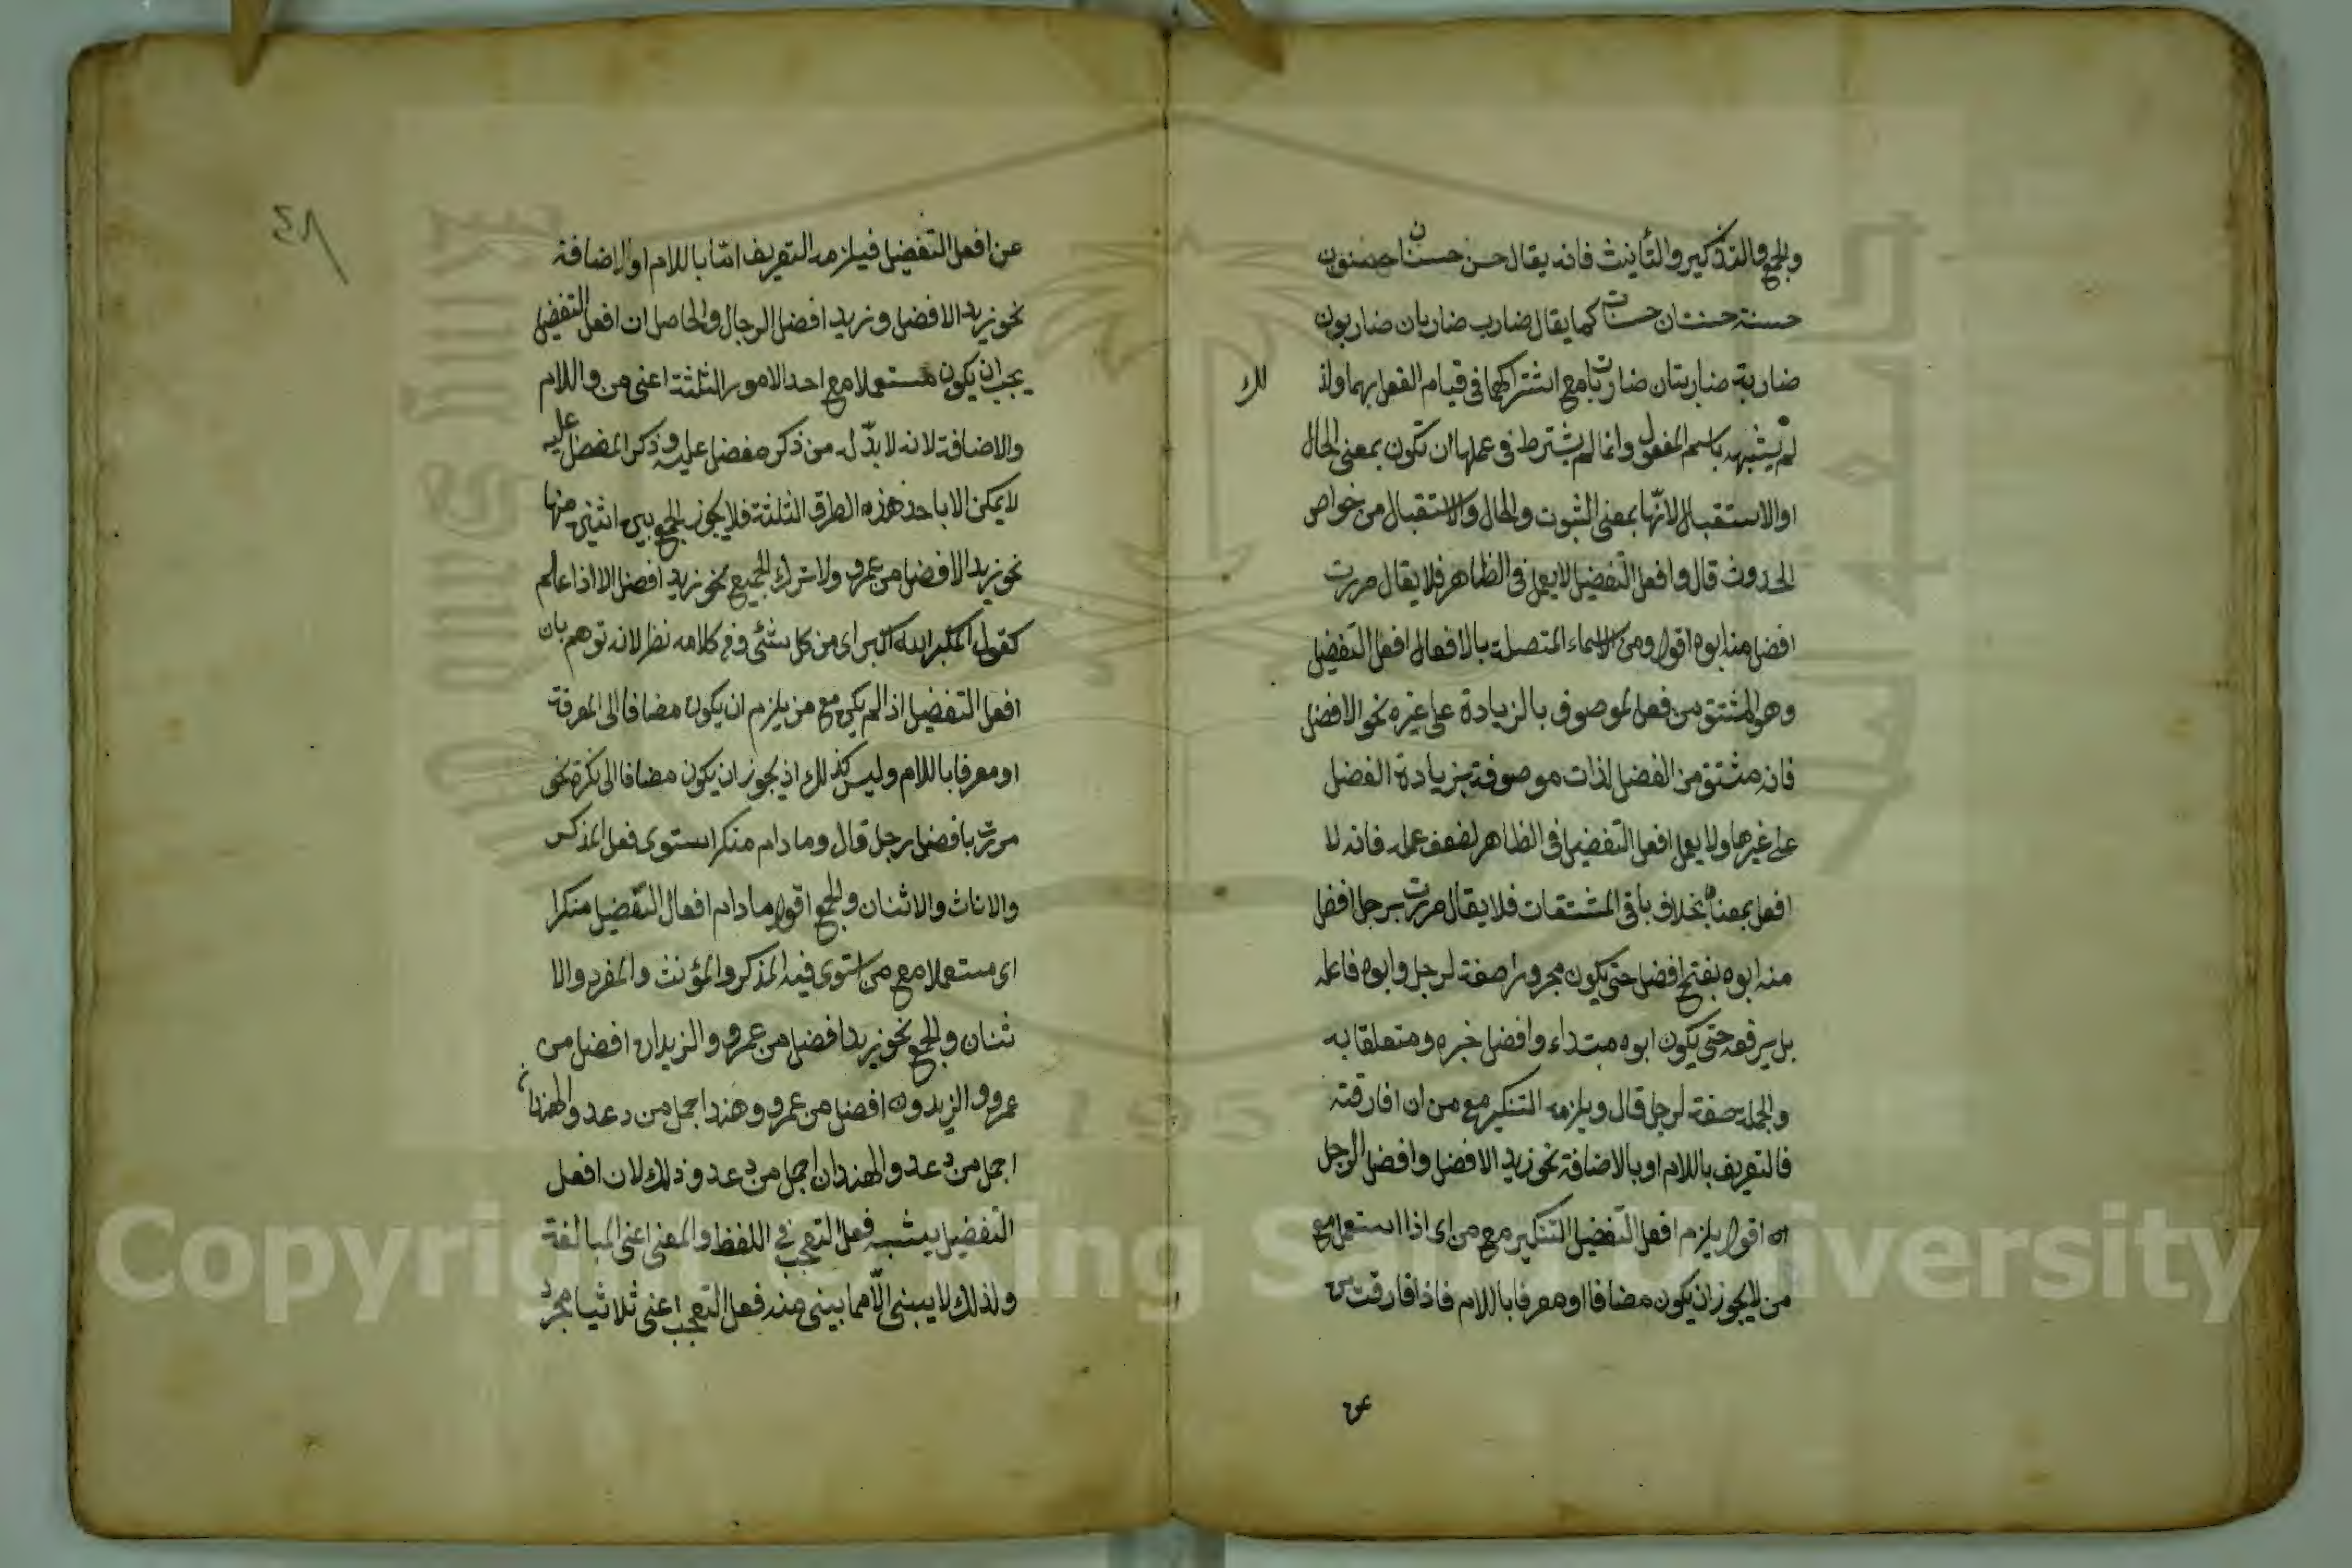 والجمع والتذكير والتأنيث فانه يقال حسن حسنان حسنون
حسنة حسنتان حسنات كما يقال ضارب ضاربان ضاربون
ضاربة ضاربتان ضاربات مع اشتراكهما فى قيام الفعل بهما ولذ
لك
لم يشبهه باسم المفعول وانما لم يشترط فى عملها ان تكون بمعنى الحال
او الاستقبال لانها بمعنى الثبوت والحال والاستقبال من خواص
الحدوث قال وافعل التفضيل لا يعمل فى الظاهر فلا يقال مررت
افضل منه ابوه اقول ومن الاسماء المتصلة بالافعال افعل التفضيل
وهو المشتق من فعل لموصوف بالزيادة على غيره نحو الافضل
فانه مشتق من الفضل لذات موصوفة بزيادة الفضل
على غيرها ولا يعمل افعل التفضيل فى الظاهر لضعف عمله فانه لا
افعل بمعناه بخلاف باقى المشتقات فلا يقال مررت برجل افضل
منه ابوه بفتح افضل حتى يكون مجرورا صفة لرجل وابوه فاعله
بل يرفعه حتى يكون ابوه مبتداء وافضل خبره ومتعلقا به
والجملة صفة لرجل قال ويلزمه التنكير مع من ان افارقته
فالتعريف باللام او بالاضافة نحو زيد الافضل وافضل الرجل
اه اقول يلزم افعل التفضيل التنكير مع من اى اذا استعمل مع
من لا يجوز ان يكون مضافا او معرفا باللام فاذا فارقت من
عن
٤٨
عن افعل التفضيل فيلزمه التعريف اما باللام او الاضافة
نحو زيد الافضل وزيد افضل الرجال والحاصل ان افعل التفضيل
يجب ان يكون مستعملا مع احد الامور الثلثة اعنى من واللام
والاضافة لانه لا بد له من ذكر مفضل عليه وذكر المفضل عليه
لا يمكن الا باحد هذه الطرق الثلثة فلا يجوز الجمع بين اثنين منها
نحو زيد الافضل من عمرو ولا ترك الجميع نحو زيد افضل الا اذا علم
كقول المكبر الله اكبر اى من كل شئى وفى كلامه نظر لانه توهم بان
افعل التفضيل اذا لم يكن مع من يلزم ان يكون مضافا الى المعرفة
او معرفا باللام وليس كذلك اذ يجوز ان يكون مضافا الى نكرة نحو
مررت بافضل رجل قال وما دام منكرا استوى فعل المذكر
والاناث والاثنان والجمع اقول ما دام افعال التفضيل منكرا
اى مستعملا مع من استوى فيه المذكر والمؤنث والمفرد والا
ثنان والجمع نحو زيد افضل من عمرو والزيدان افضل من
عمرو والزيدون افضل من عمرو وهند اجمل من دعد والهندات
اجمل من دعد والهندان اجمل من دعد وذلك لان افعل
التفضيل يشبه فعل التعجب فى اللفظ والمعنى اعنى المبالغة
ولذلك لا يبنى الا مما يبنى منه فعل التعجب اعنى ثلاثيا مجرد
Copyright © King Saud University
1957